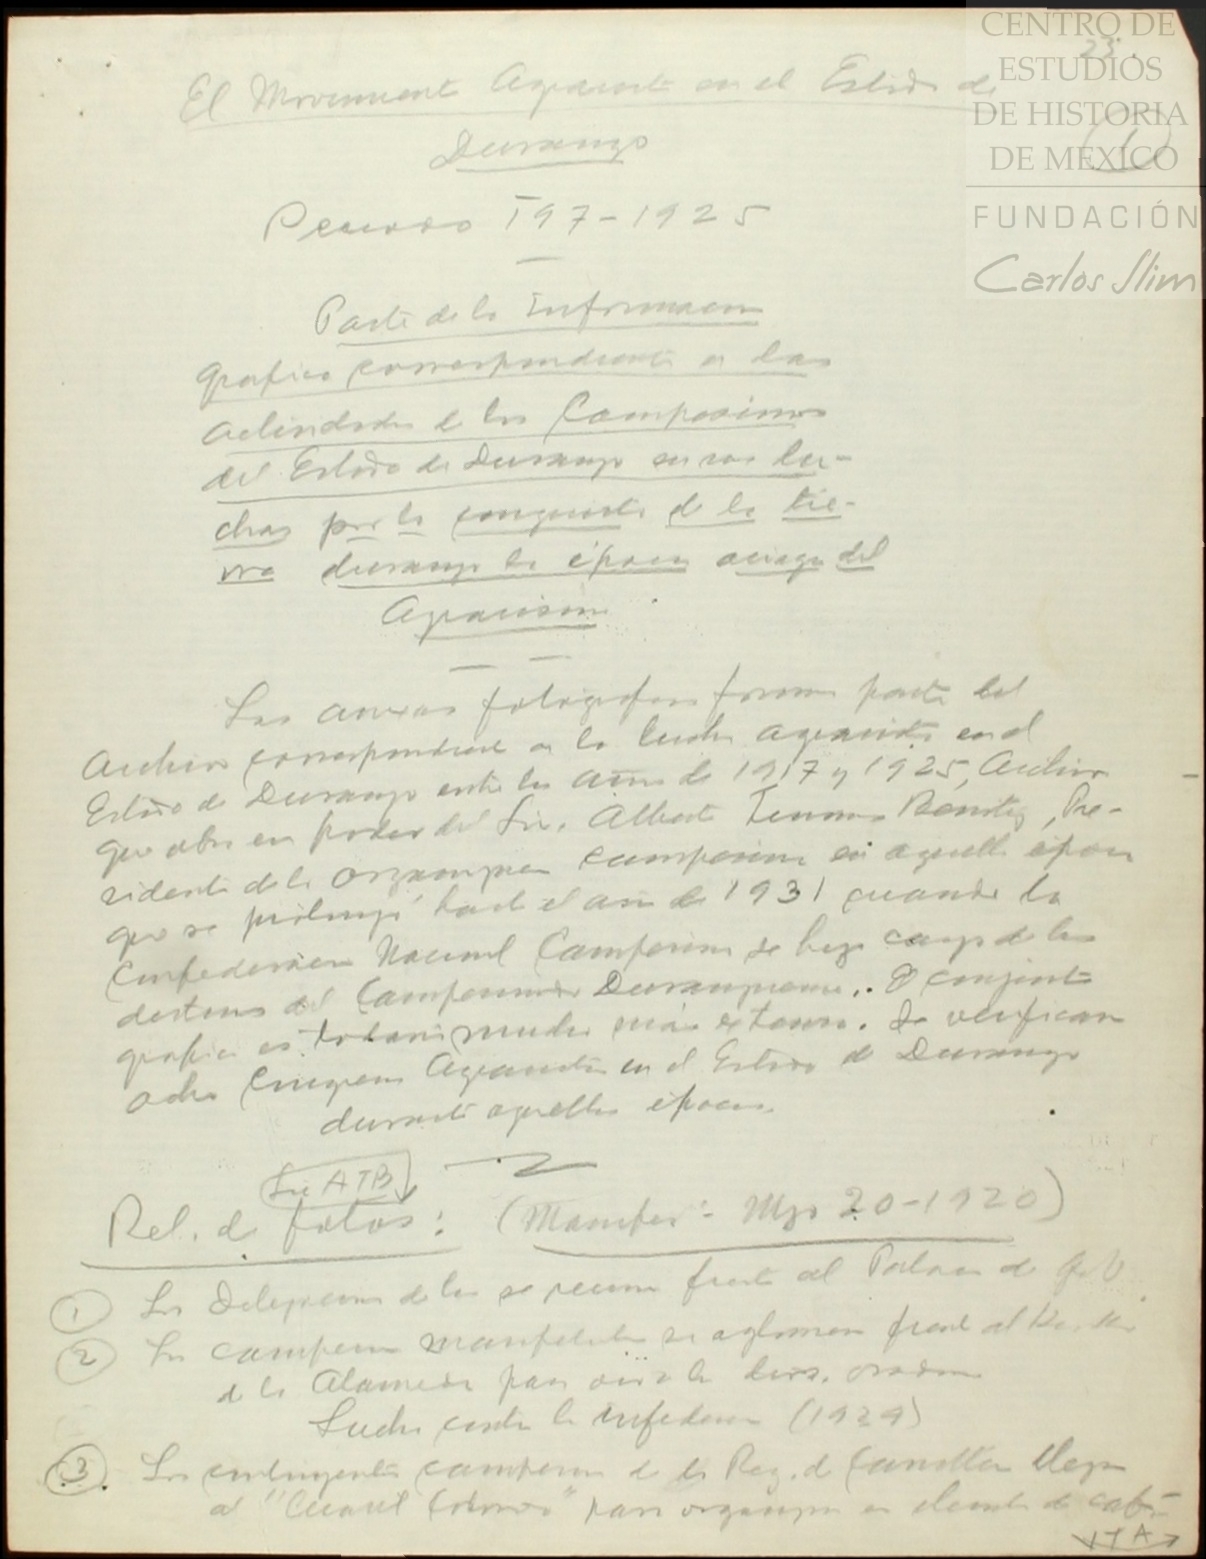 CENTRO DE
ESTUDIOS
DE HISTORIA
DE MÉXICO
FUNDACIÓN
Carlos Slim
23.
(1)
El Movimiento Agrarista en el Estado de
Durango
Periodo 197-1925
Parte de la Informacion
Grafica correspondiente a las
actividades de los Campesinos
del Estado de Durango en sus lu-
chas por la conquista de la tie-
rra durango la época aciaga del
Agrarismo.
Las anexas fotografias forman parte del
Archivo correspondiente a la lucha agrarista en el
Estado de Durango entre los años de 1917 y 1925, Archivo
que obra en poder del Lic. Alberto Terrones Benitez, Pre-
sidente de la organizacion campesina en aquella época
que se prolongó hasta el año de 1931 cuando la
Confederacion Nacional Campesina se hizo cargo de los
destinos del Campesinado Duranguense. El conjunto
grafico es todavia mucho más extenso. Se verificaron
ocho Congresos Agraristas en el Estado de Durango
durante aquellas épocas.
Lic ATB
Rel. de fotos: (Manifes - Mzo 20-1920)
1 Las Delegaciones de los se reunen frente al Palacio de Gob
2 Los campesinos manifestantes se aglomeran frente al
de la Alameda para oir a los oradores
Lucha contra la infidencia (1929)
3. Los contingentes campesinos de la Reg. de Canatlan llegan
al "Cuartel " para organizar el de cab-